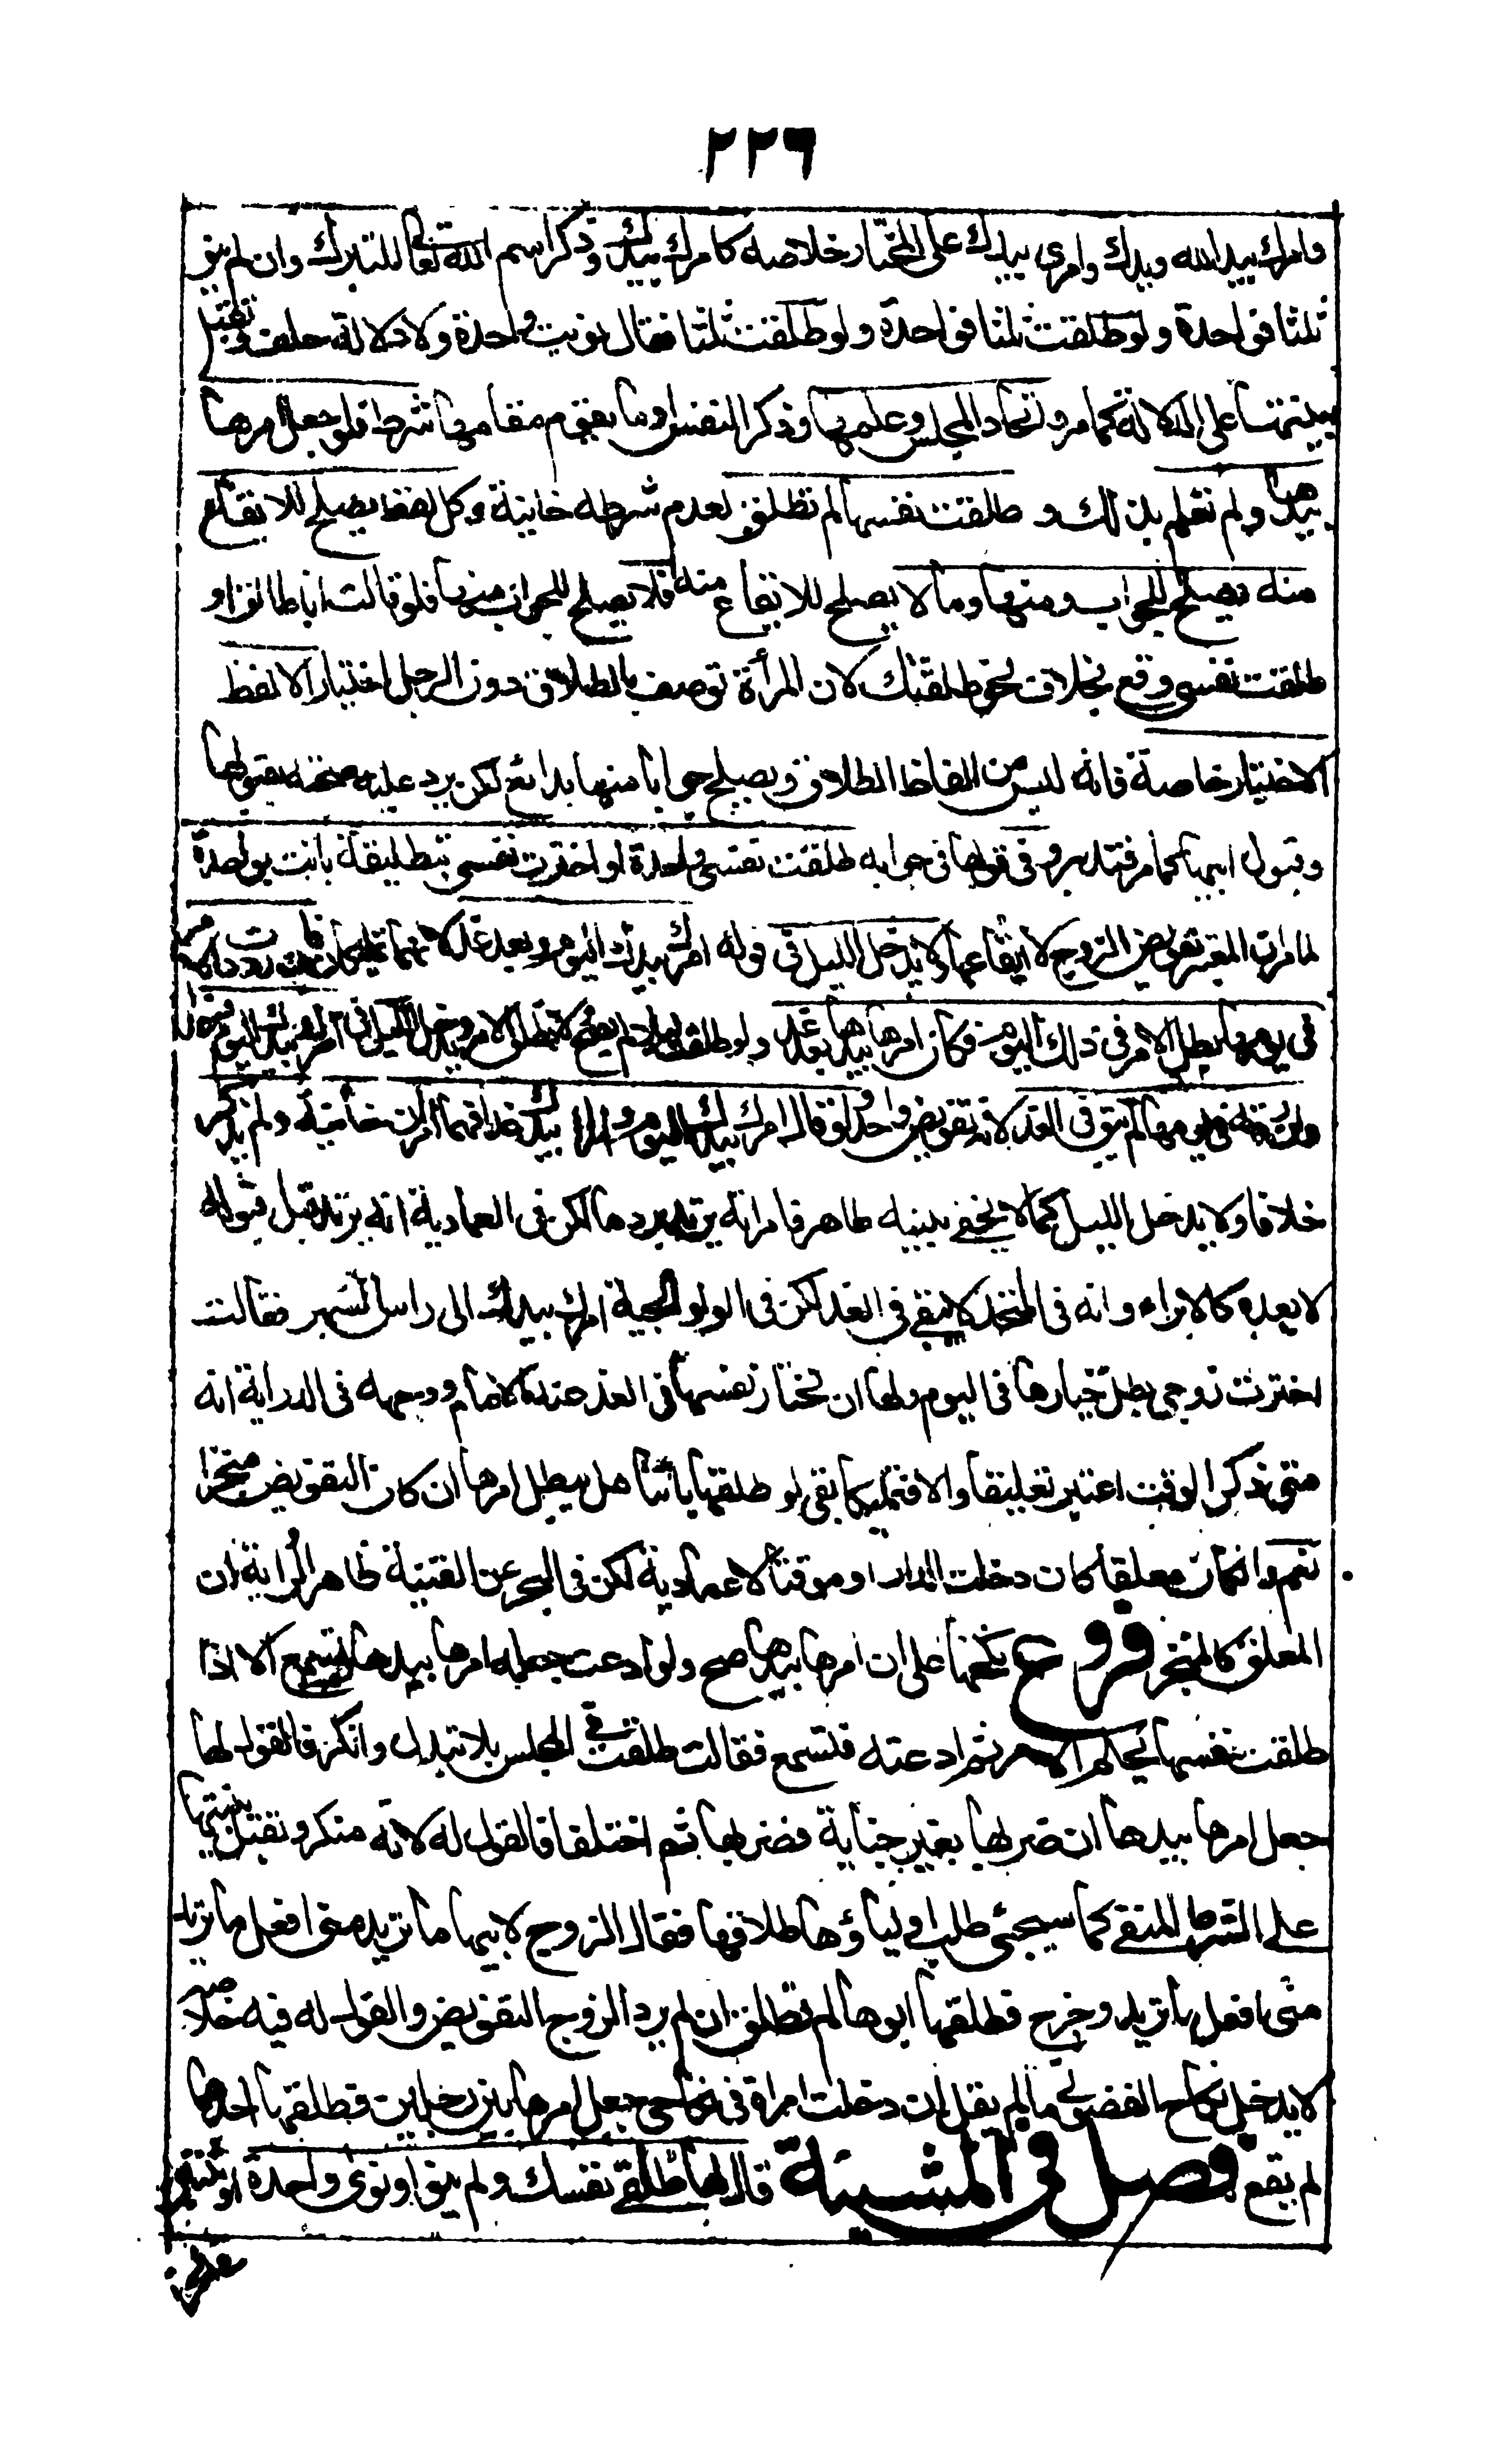 ٢٢٦
وامرك بيد الله ويدك وامري بيدك على المختار خلاصه كامرك بيدك وذكر اسم الله تعالى للتبرك وان لم ينو
ثلثا فواحدة ولو طلقت ثلثا فواحدة ولو طلقت ثلثا فقال نويت واحدة ولا دلالة حلف وتقبل
بينتها على الدلالة كما مر واتحاد المجلس وعلمها وذكر النفس او ما يقوم مقامها شرط فلو جعل امرها
بيدها ولم تعلم بذلك وطلقت نفسها لم تطلق لعدم شرطه خانية وكل لفظ يصلح للايقاع
منه يصلح للجواب منها وما لا يصلح للايقاع منه فلا يصلح للجواب منها فلو قالت انا طالق او
طلقت نفسي وقع بخلاف نحو طلقتك لان المرأة توصف بالطلاق دون الرجل اختيار الا لفظ
الاختيار خاصة فانه ليس من الفاظ الطلاق ويصلح جوابا منها بدائع لكن يرد عليه صحته بقبولها
وقبول ابيها كما مر فتدبر وفي قولها في جوابه طلقت نفسي واحدة او اخترت نفسي بتطليقة بانت بواحدة
لما مر ان المعتبر تفويض الزوج لا ايقاعها ولا يدخل الليل في قوله امرك بيدك اليوم وبعد غد لانهما تمليكان فان ردت الامر
في يومها بطل الامر في ذلك اليوم وكان امرها بيدها بعد غد ولو طلقت ليلا لم يصح ولا تطلق الا مرة ويدخل الليل في امرك بيدك اليوم وغدا
وان ردته في يومها لم يبق في الغد لانه تفويض واحد ولو قال امرك بيدك اليوم وامرك بيدك غدا فهما امران خانية ولم يذكر
خلافا ولا يدخل الليل كما لا يخفى تنبيه ظاهر ما مر انه يرتد بردها لكن في العمادية انه يرتد قبل قبوله
لا بعده كالابراء وانه في المتحد لا يبقى في الغد لكن في الولوالجية امرك بيدك الى راس الشهر فقالت
اخترت زوجي بطل خيارها في اليوم ولها ان تختار نفسها في الغد عند الامام ووجهه في الدراية انه
متى ذكر الوقت اعتبر تعليقا والا فتمليكا بقي لو طلقها بائنا هل يبطل امرها ان كان التفويض منجزا
نعم وان كان معلقا كان دخلت الدار او موقتا لا عمادية لكن في البحر عن القنية ظاهر الرواية ان
المعلق كالمنجز فروع نكحها على ان امرها بيدها صح ولو ادعت جعله امرها بيدها لم تسمع الا اذا
طلقت نفسها بحكم الامر ثم ادعته فتسمع فقالت طلقت في المجلس بلا تبدل وانكر فالقول لها
جعل امرها بيدها ان ضربها بغير جناية فضربها ثم اختلفا فالقول له لانه منكر وتقبل بينتها
على الشرط المنفي كما سيجئ طلب اولياؤها طلاقها فقال الزوج لابيها ما تريد مني افعل ما تريد
مني افعل ما تريد وخرج فطلقها ابوها لم تطلق ان لم يرد الزوج التفويض والقول له فيه خلاصه
لا يدخل نكاح الفضولي ما لم يقل ان دخلت امراة في نكاحي جعل امرها بين رجلين فطلقها احدهما
لم يقع فصل في المشيئة قال لها طلقي نفسك ولم ينو او نوى واحدة او ثنتين